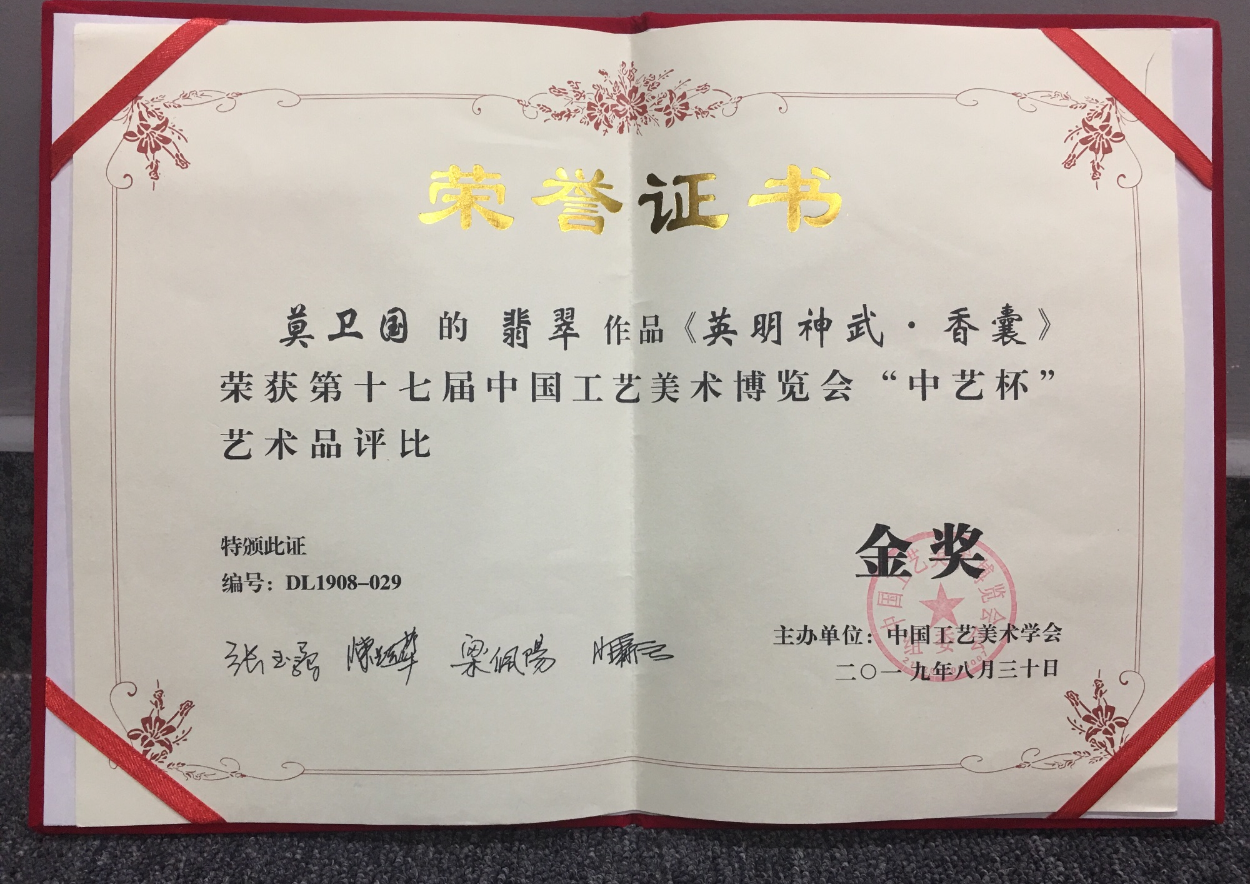 荣誉证书
莫卫国 的 翡翠 作品《英明神武·香囊》
荣获第十七届中国工艺美术博览会“中艺杯”
艺术品评比
金奖
特颁此证
编号：DL1908-029
主办单位：中国工艺美术学会
二〇一九年八月三十日